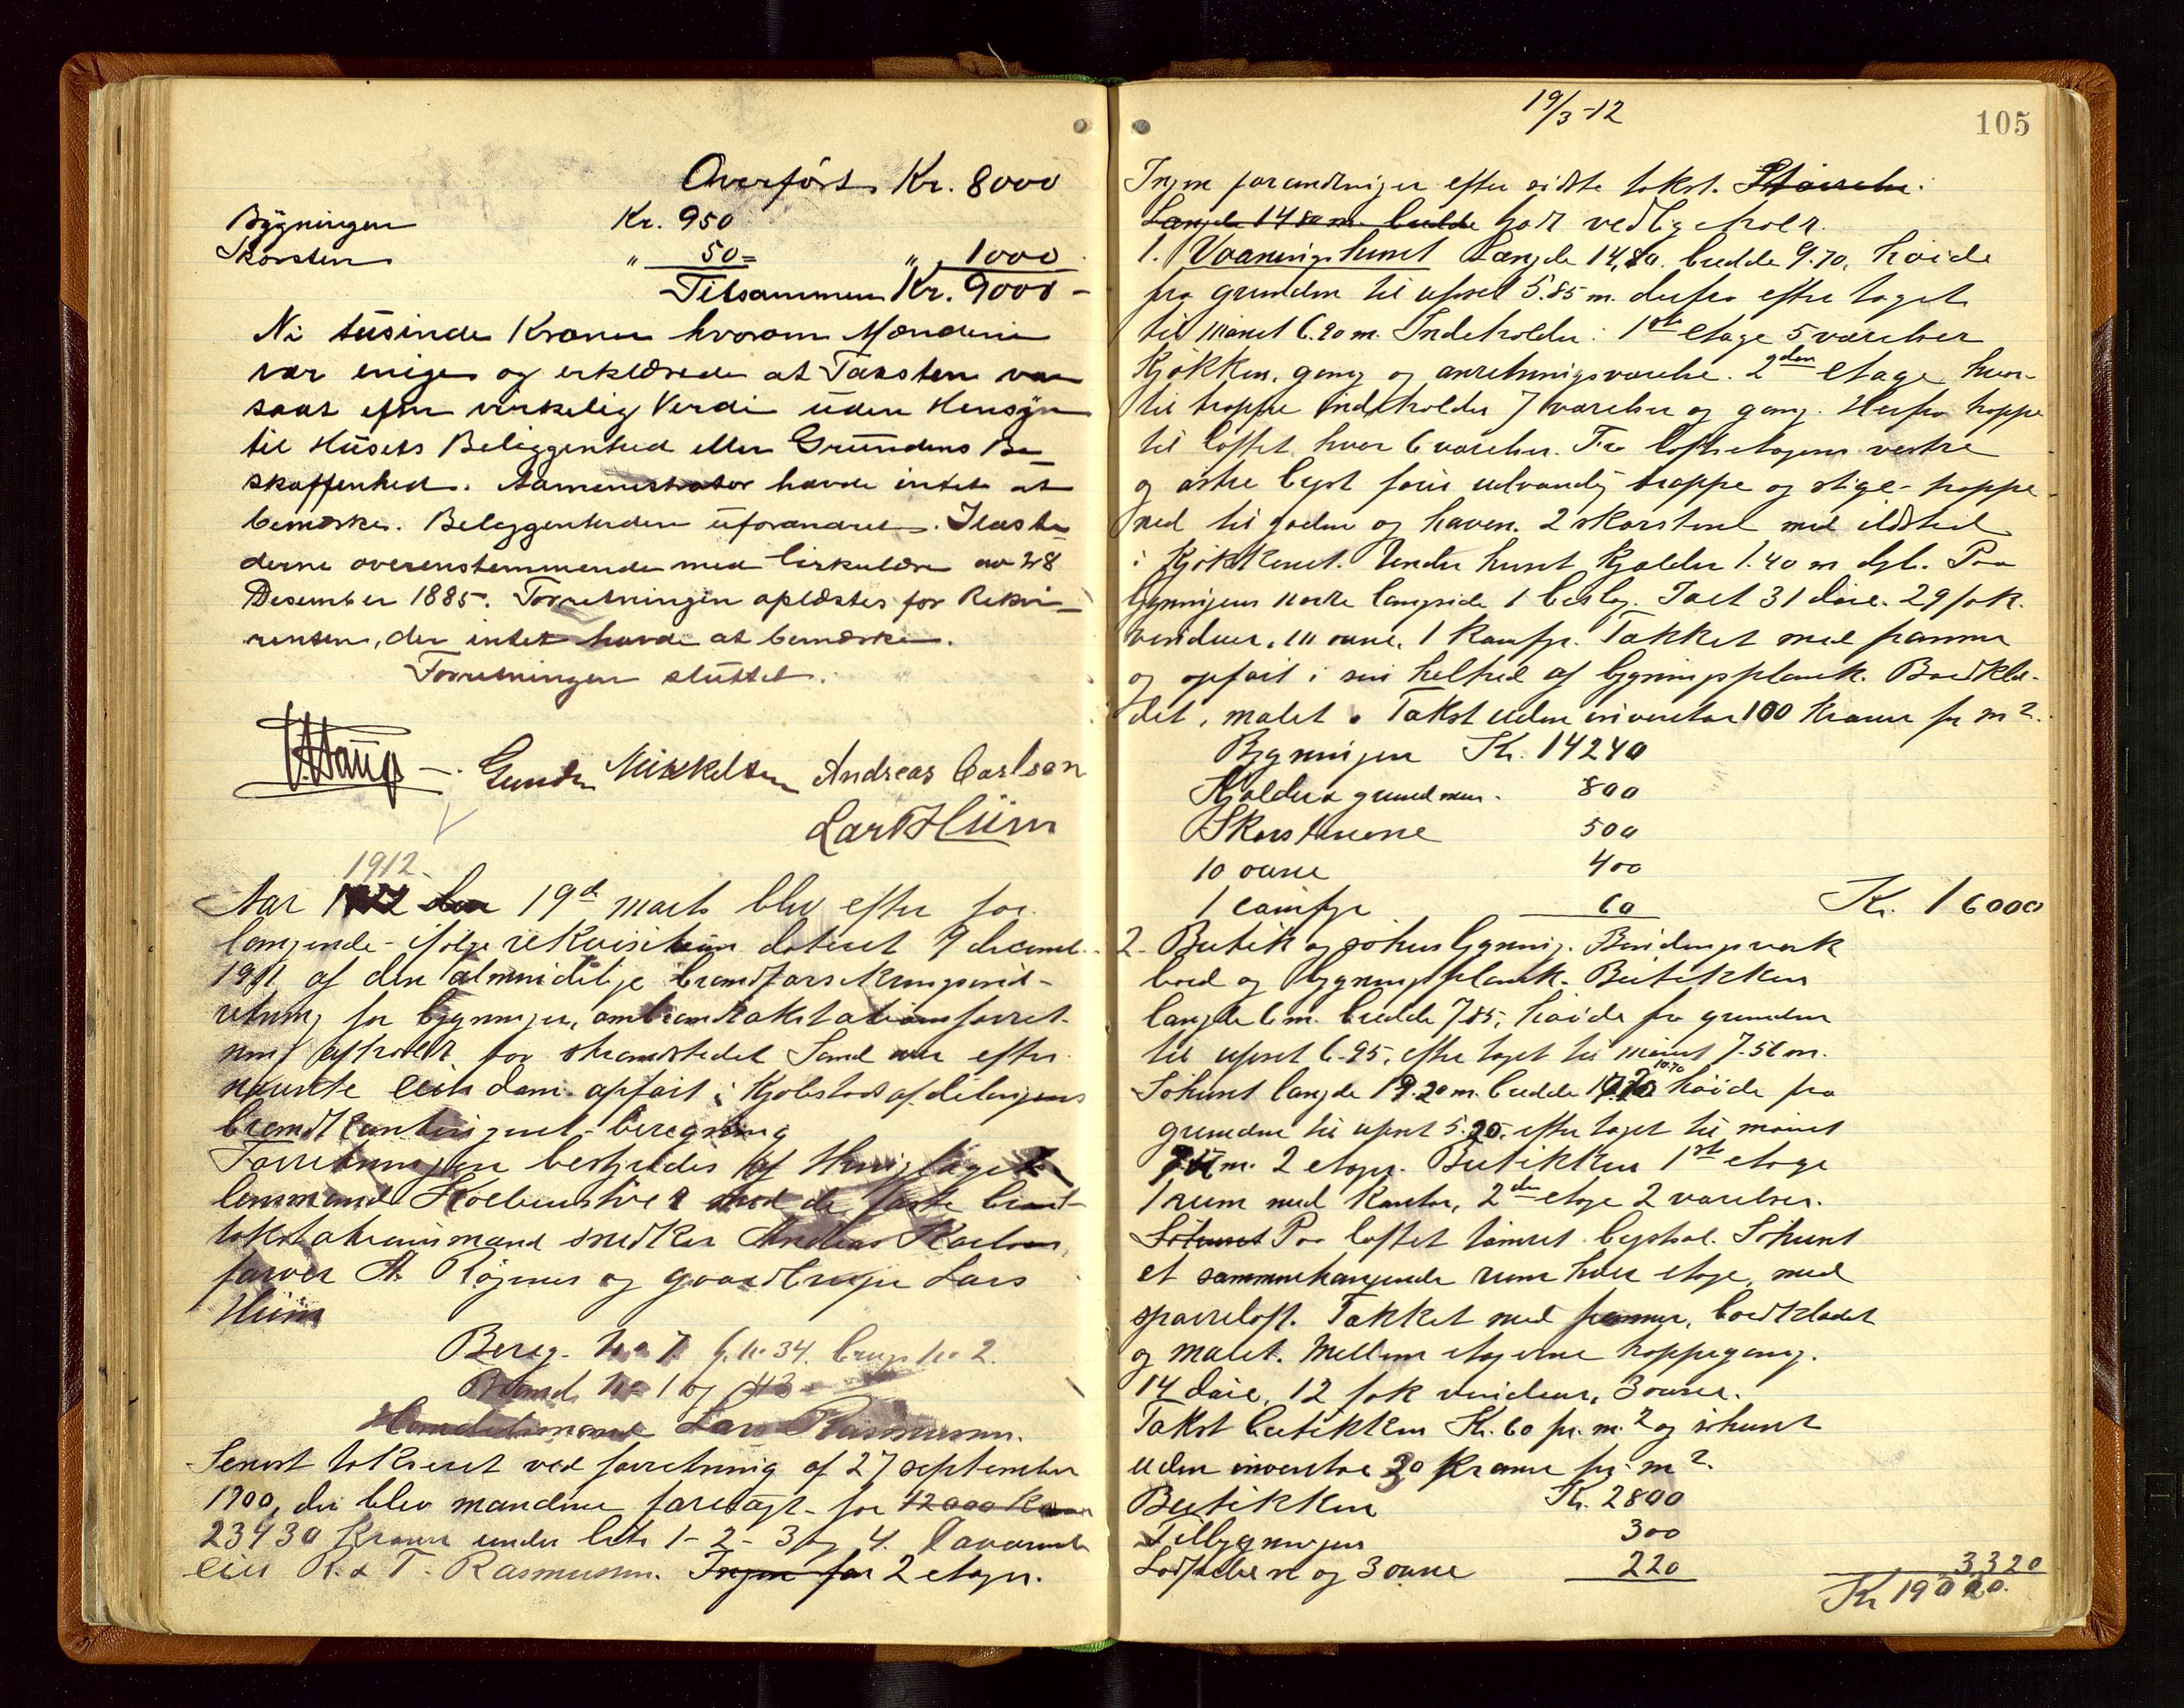 Overført Kr. 8000
Bygningen Kr. 950
Skorsten " 50= " 1000
Tilsammen Kr. 9000 -
Ni tusinde Kroner hvorom Mændene
var enige og erklærede at Taksten var
saat efter virkelig Verdi uden Hensyn
til Husets Beliggenhed eller Grundens Be-
skaffenhed. Administrator havde intet at
bemærke. Beliggenheden uforandret. Ildste-
derne overenstemmende med Cirkulære av 28
Desember 1885. Forretningen oplæstes for Rekvi-
renten, der intet havde at bemærke.
Forretningen sluttet.
Haug - Gunder Mikkelsen Andreas Carlson
Lars Hiim
1912.
Aar 1912 den 19d marts blev efter for-
langende ifølge rekvisition dateret 7 decemb.
1911 af den almindelige brandforsikringsind-
retning for bygninger, ombrandtakstationsforret-
ning afholdt for strandstedet Sand over efter-
nævnte eiendom opført i Kjøbstadafdelingens
brandkontingent-beregning
Forretningen bestyredes af
lensmand med de faste brand-
takstationsmænd snedker Andreas Karlson,
farver A. Røgnes og gaardbruger Lars
Hiim
Bereg. No 7. G. No 34. Brugs No 2.
Brand No 1 og 43
Handelsmand Lars Rasmussen.
Senest takseret ved forretning af 27 september
1900, der blev mændene forelagt - for 12000 Kroner
23430 Kroner under litr 1-2-3 og 4. Navarende
eier R. & T. Rasmussen. Ingen for 2 etager.
19/3-12
105
Ingen forandringer efter sidste takst. Størrelse:
Længde 14 80 m. bredde godt vedligeholdt.
1. Vaaningshuset Længde 14,80. bredde 9.70, høide
fra grunden til ufset 5.85 m. derfra efter taget
til mønet 6.20 m. Indeholder: 1ste etage 5 værelser
Kjøkken, gang og anretningsværelse. 2den etage hvor-
til trappe indeholder 7 værelser og gang. Herfra trappe
til loftet hvor 6 værelser. Fra loftsetagens vestre
og østre gavl fører udvendig trappe og stige-trappe
ned til gaden og haven. 2 skorstene med ildsted
i Kjøkkenet. Under huset Kjælder 1.40 m dyb. Paa
bygningens nordre langside 1 bislag. Ialt 31 døre. 29 fak.
vinduer, 10 ovne, 1 Komfyr. Tækket med panner
og opført i sin helhed af bygningsplank. Bordklæ-
det, malet. Takst uden inventar 100 Kroner pr m2.
Bygningen Kr. 14240
Kjælder & grundmur. 800
Skorstenene 500
10 ovne 400
1 comfyr 60 Kr. 16000
2. Butik og søhusbygning. Bindingsverk
bord og bygningsplank. Butikken
længde 6 m. bredde 7.85, høide fra grunden
til ufset 6.95, efter taget til mønet 7.50 m.
10.70
Søhuset længde 19.20 m. bredde høide fra
grunden til ufset 5.20. efter taget til mønet
m. 2 etager. Butikken 1ste etage
1 rum med Kontor, 2den etage 2 værelser.
Søhuset Paa loftet tømret. Søhuset
et sammenhængende rum hver etage, med
sparreloft. Tækket med panner, bordklædet
og malet. Mellem etagerne trappegang.
14 døre, 12 fak vinduer, 3 ovne.
Takst butikken Kr. 60 pr. m.2 og søhuset
uden inventar 30 Kroner pr m2.
Butikken Kr. 2800
Tilbygningen 300
og 3 ovne 220 3320
Kr 19020.